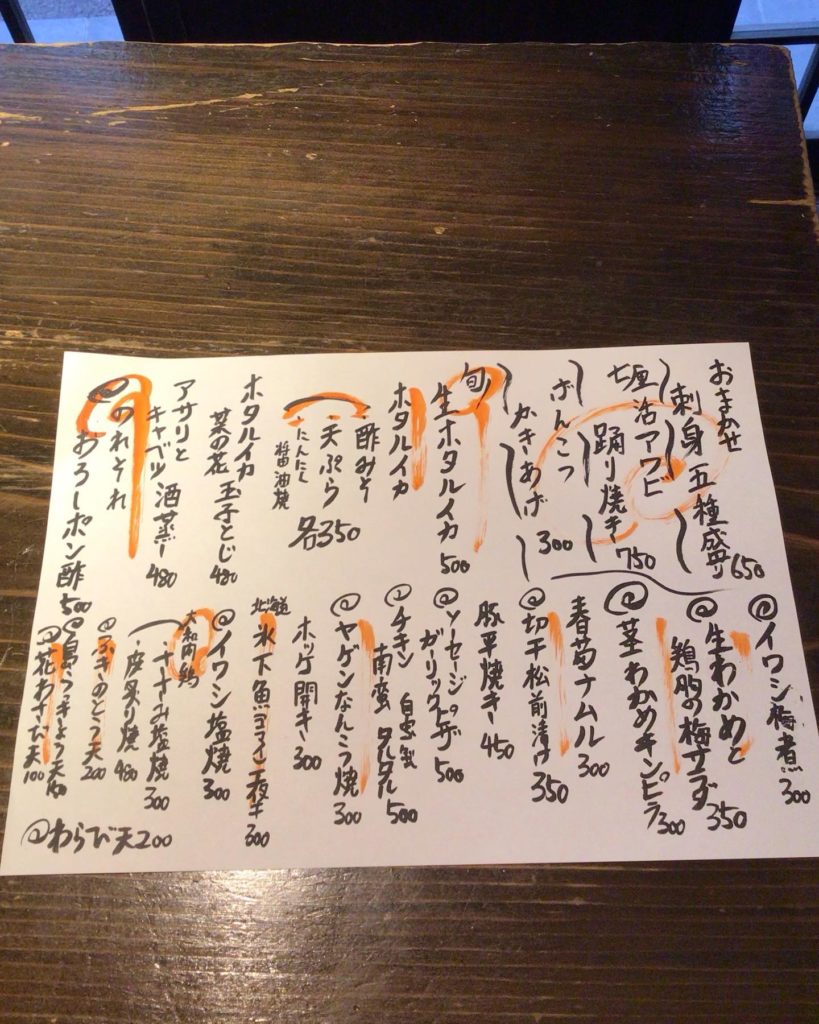 おまかせ
刺身五種盛り 650
活アワビ
踊り焼き 750
げんこつ
かきあげ 300
旬
生ホタルイカ 500
ホタルイカ
・酢みそ
・天ぷら
・にんにく
醤油焼
各350
ホタルイカ
菜の花 玉子とじ 480
アサリと
キャベツ 酒蒸し 480
のれそれ
おろしポン酢 500
イワシ梅煮 300
生わかめと
鶏胸の梅サラダ 350
茎わかめキンピラ 300
春菊ナムル 300
切干松前漬け 350
豚平焼き 450
ソーセージの
ガーリックピザ 500
チキン
南蛮 自家製
タルタル 500
ヤゲンなんこつ焼 300
ホッケ開き 300
北海道
氷下魚(コマイ)一夜干 300
イワシ塩焼 300
大和肉鶏
・ささみ塩焼 300
・皮炙り焼 480
ふきのとう天 200
花わさび天 100
わらび天 200